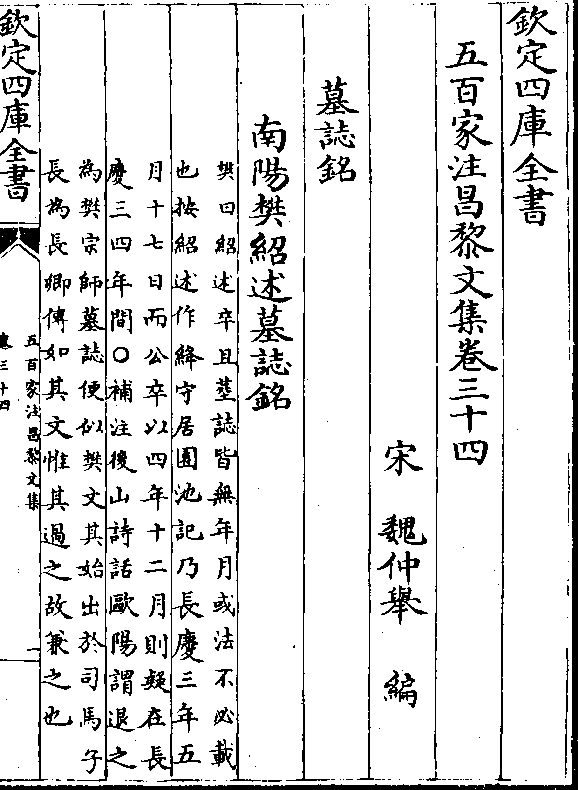 欽定四庫全書
五百家注昌黎文集卷三十四
宋 魏仲舉 編
墓誌銘
南陽樊紹述墓誌銘
樊曰紹述卒且塟誌皆無年月或法不必載
也按紹述作絳守居園池記乃長慶三年五
月十七日而公卒以四年十二月則疑在長
慶三四年間○補注後山詩話歐陽謂退之
為樊宗師墓誌便似樊文其始出於司馬子
長為長卿傳如其文惟其過之故兼之也
欽定四庫全書
五百家注昌黎文集
卷三十四
一